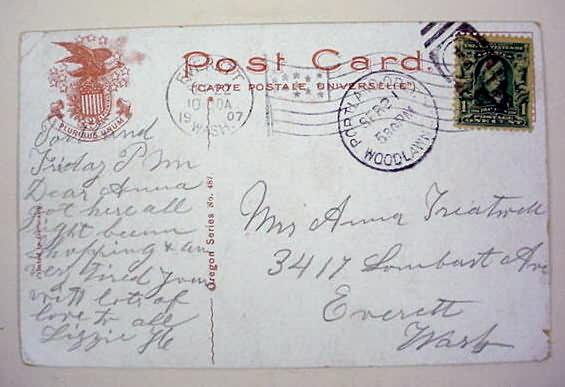 Post Card.
("CARTE POSTALE, UNIVERSELLE")
PLURIBUS UNUM
EVERETT
22
10 30A
19 07
WASH.
PORTLAND, OR.
SEP 21
5 30 PM
WOODLAWN
1
Portland
Friday P M
Dear Anna
got here all
right been
shopping & am
very tired Your
with lots of
love to all
Lizzie H
Oregon Series No. 487.
Mrs Anna Treatwell
3417 Lombard Ave
Everett
Wash